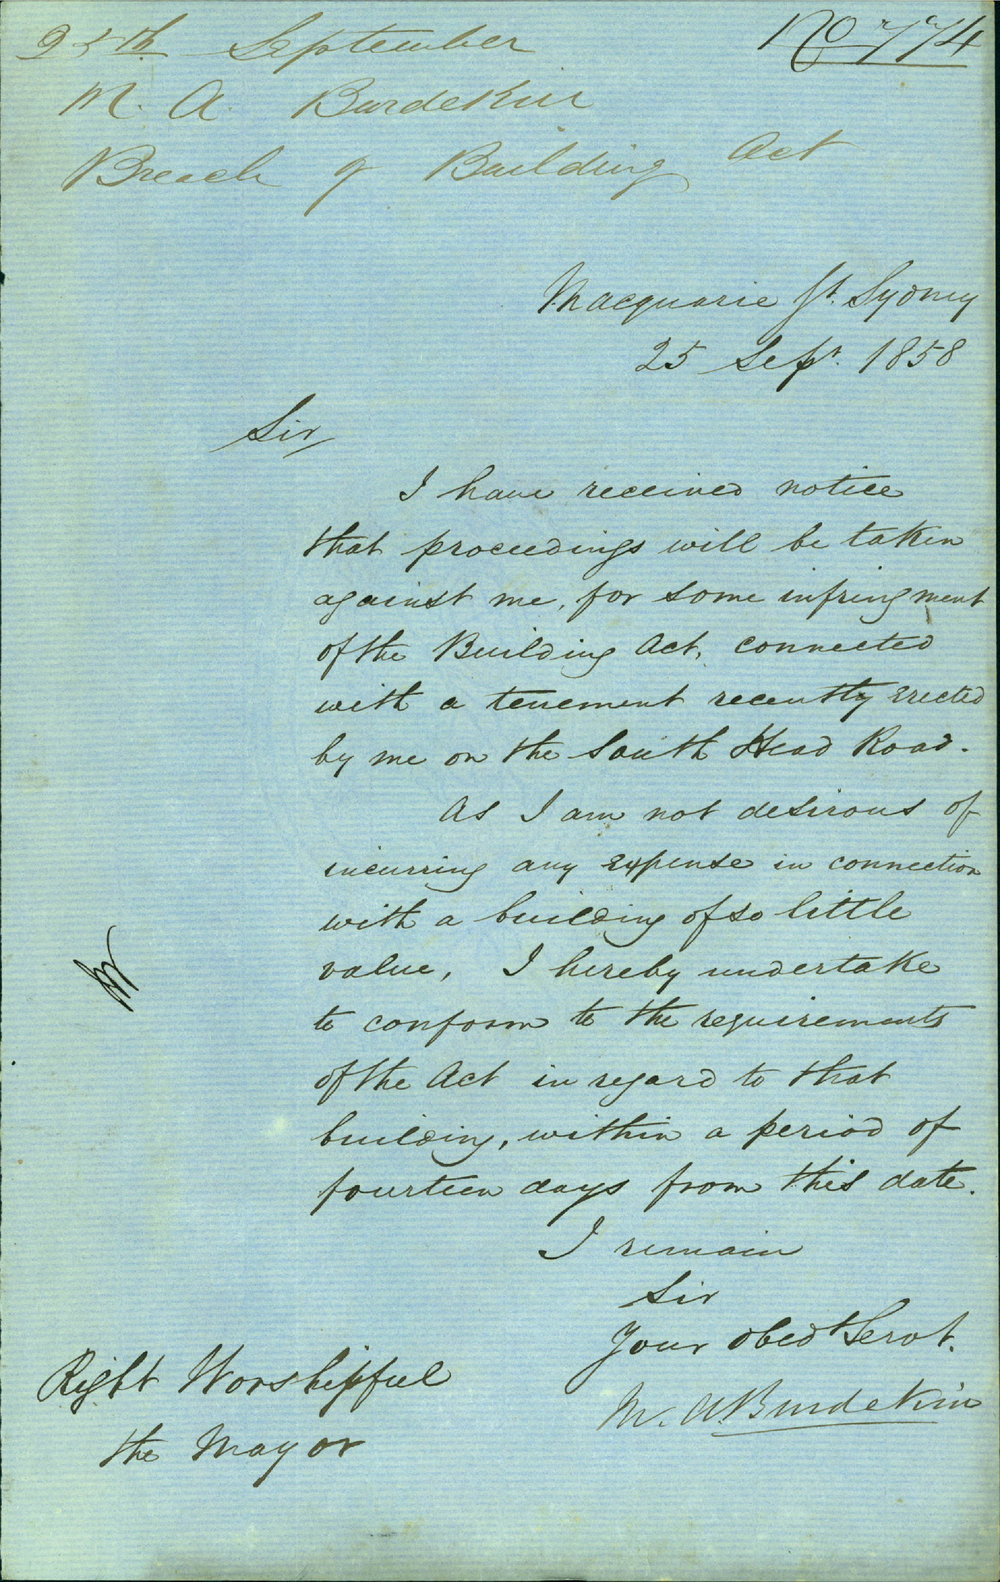 25th September
No 774
M. A. Burdekin
Breach of Building Act
Macquarie St. Sydney
25 Sepr. 1858
Sir,
I have received notice
that proceedings will be taken
against me, for some infringment
of the Building Act, connected
with a tenement recently erected
by me on the South Head Road.
As I am not desirous of
incurring any expense in connection
with a building of so little
value, I hereby undertake
to conform to the requirements
of the Act in regard to that
building, within a period of
fourteen days from this date.
I remain
Sir
Your obedt Servt.
M. A. Burdekin
Right Worshipful
the Mayor